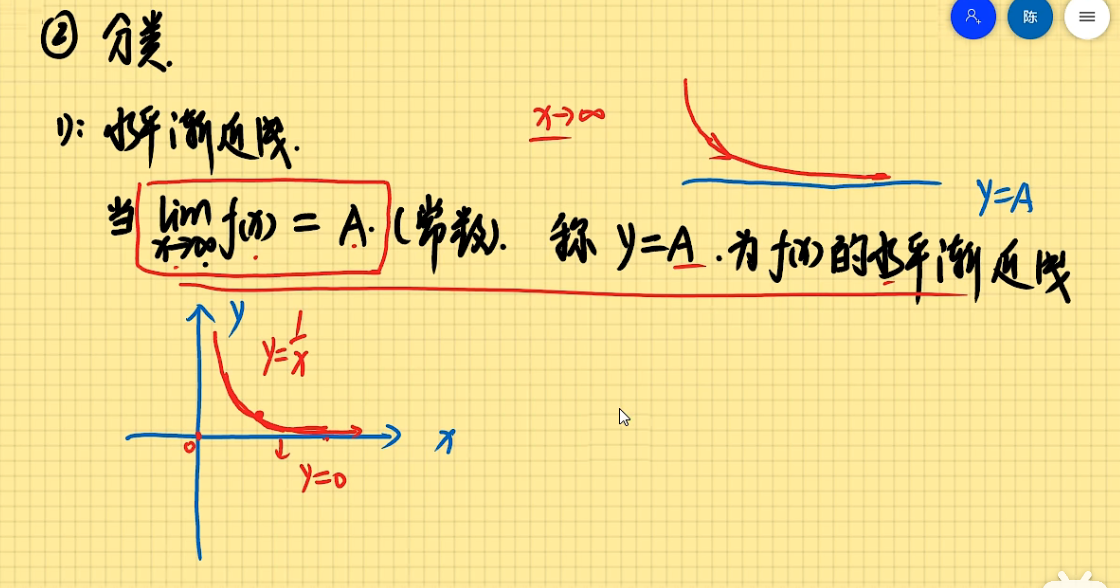 ② 分类.
陈
1): 水平渐近线.
x→∞
y=A
当 lim x→∞ f(x) = A. (常数). 称 y=A .为 f(x) 的水平渐近线
y
y=1/x
x
0
y=0